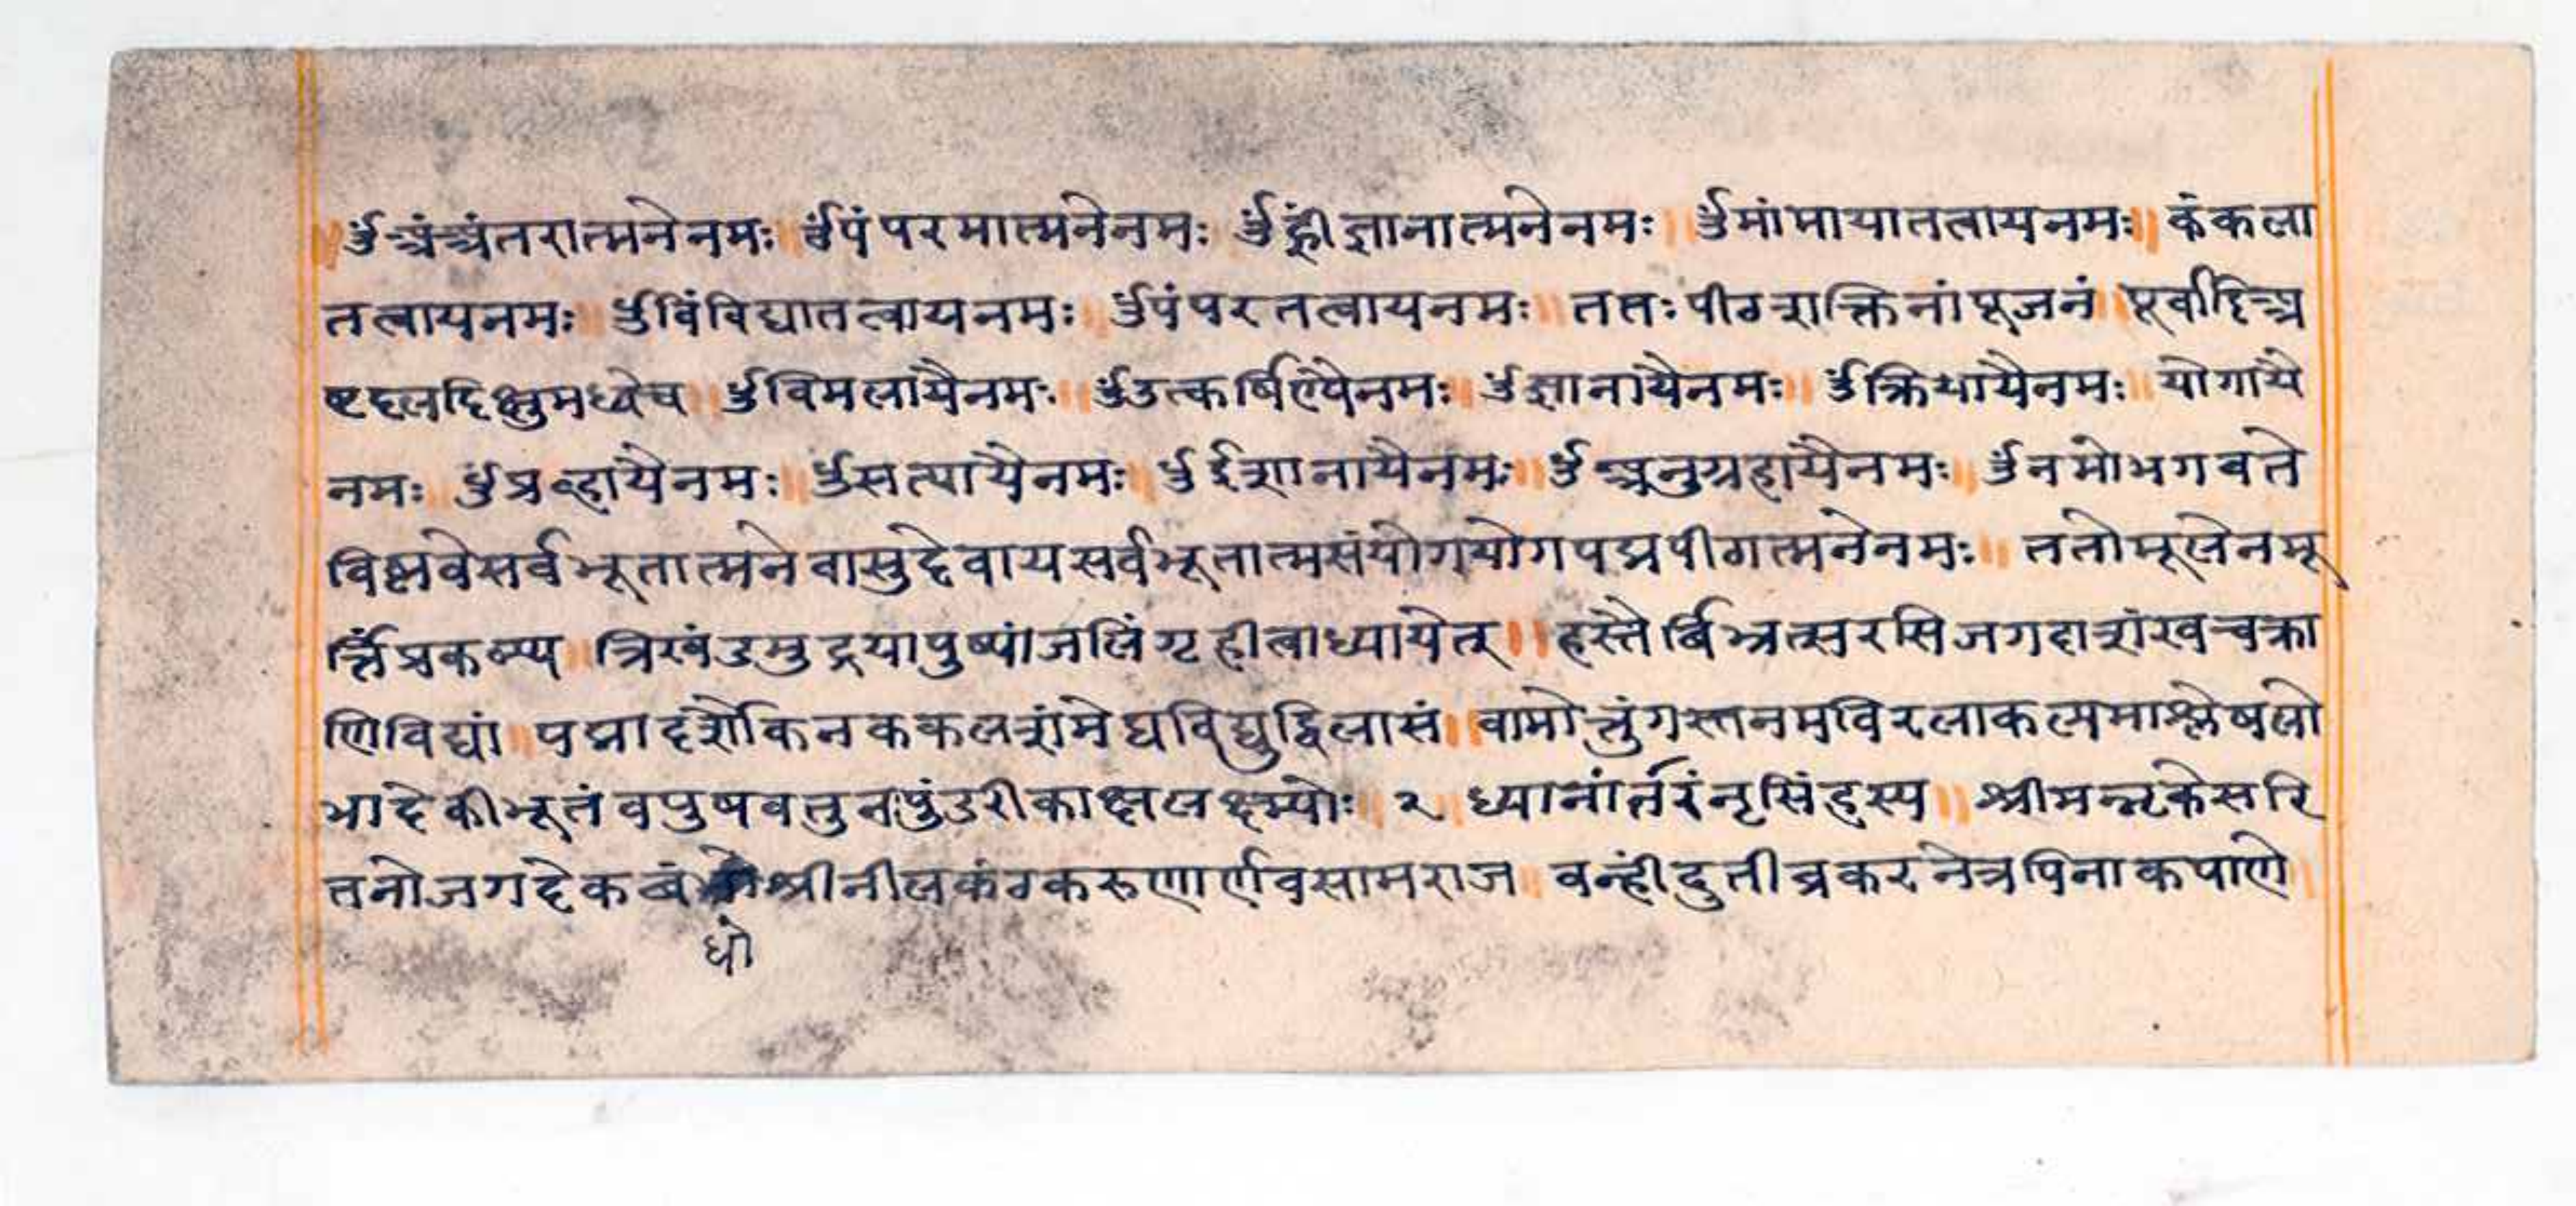 ॥ ॐअंअंतरात्मनेनमः ॥ ॐपंपरमात्मनेनमः ॐह्रींज्ञानात्मनेनमः ॥ ॐमांमायातत्वायनमः ॥ कंकला
तत्वायनमः ॥ ॐविंविद्यातत्वायनमः ॥ ॐपंपरतत्वायनमः ॥ ततः पीठशक्तिनांपूजनं ॥ पूर्वादिअ
ष्टदलदिक्षुमध्येच ॥ ॐविमलायैनमः ॥ ॐउत्कर्षिण्यैनमः ॥ ॐज्ञानायैनमः ॥ ॐक्रियायैनमः ॥ योगायै
नमः ॐप्रव्हायैनमः ॥ ॐसत्यायैनमः ॥ ॐईशानायैनमः ॥ ॐअनुग्रहायैनमः ॥ ॐनमोभगवते
विष्णवेसर्वभूतात्मनेवासुदेवायसर्वभूतात्मसंयोगयोगपद्मपीठात्मनेनमः ॥ ततोमूलेनमू
र्त्तिंप्रकल्प्य ॥ त्रिखंडमुद्रयापुष्पांजलिंगृहीत्वाध्यायेत् ॥ हस्तैर्बिभ्रत्सरसिजगदाशंखचक्रा
णिविद्यां ॥ पद्मादर्शौकनककलशंमेघविद्युद्विलासं ॥ वामोत्तुंगस्तनमविरलाकल्पमाश्लेषलो
भादेकीभूतंवपुषवतुनपुंडरीकाक्षलक्ष्म्योः ॥ २ ॥ ध्यानांर्तरंनृसिंहस्य ॥ श्रीमन्नृकेसरि
तनोजगदेकबंधोश्रीनीलकंठकरुणार्णवसामराज ॥ वन्हींदुतीव्रकरनेत्रपिनाकपाणे ॥
धो